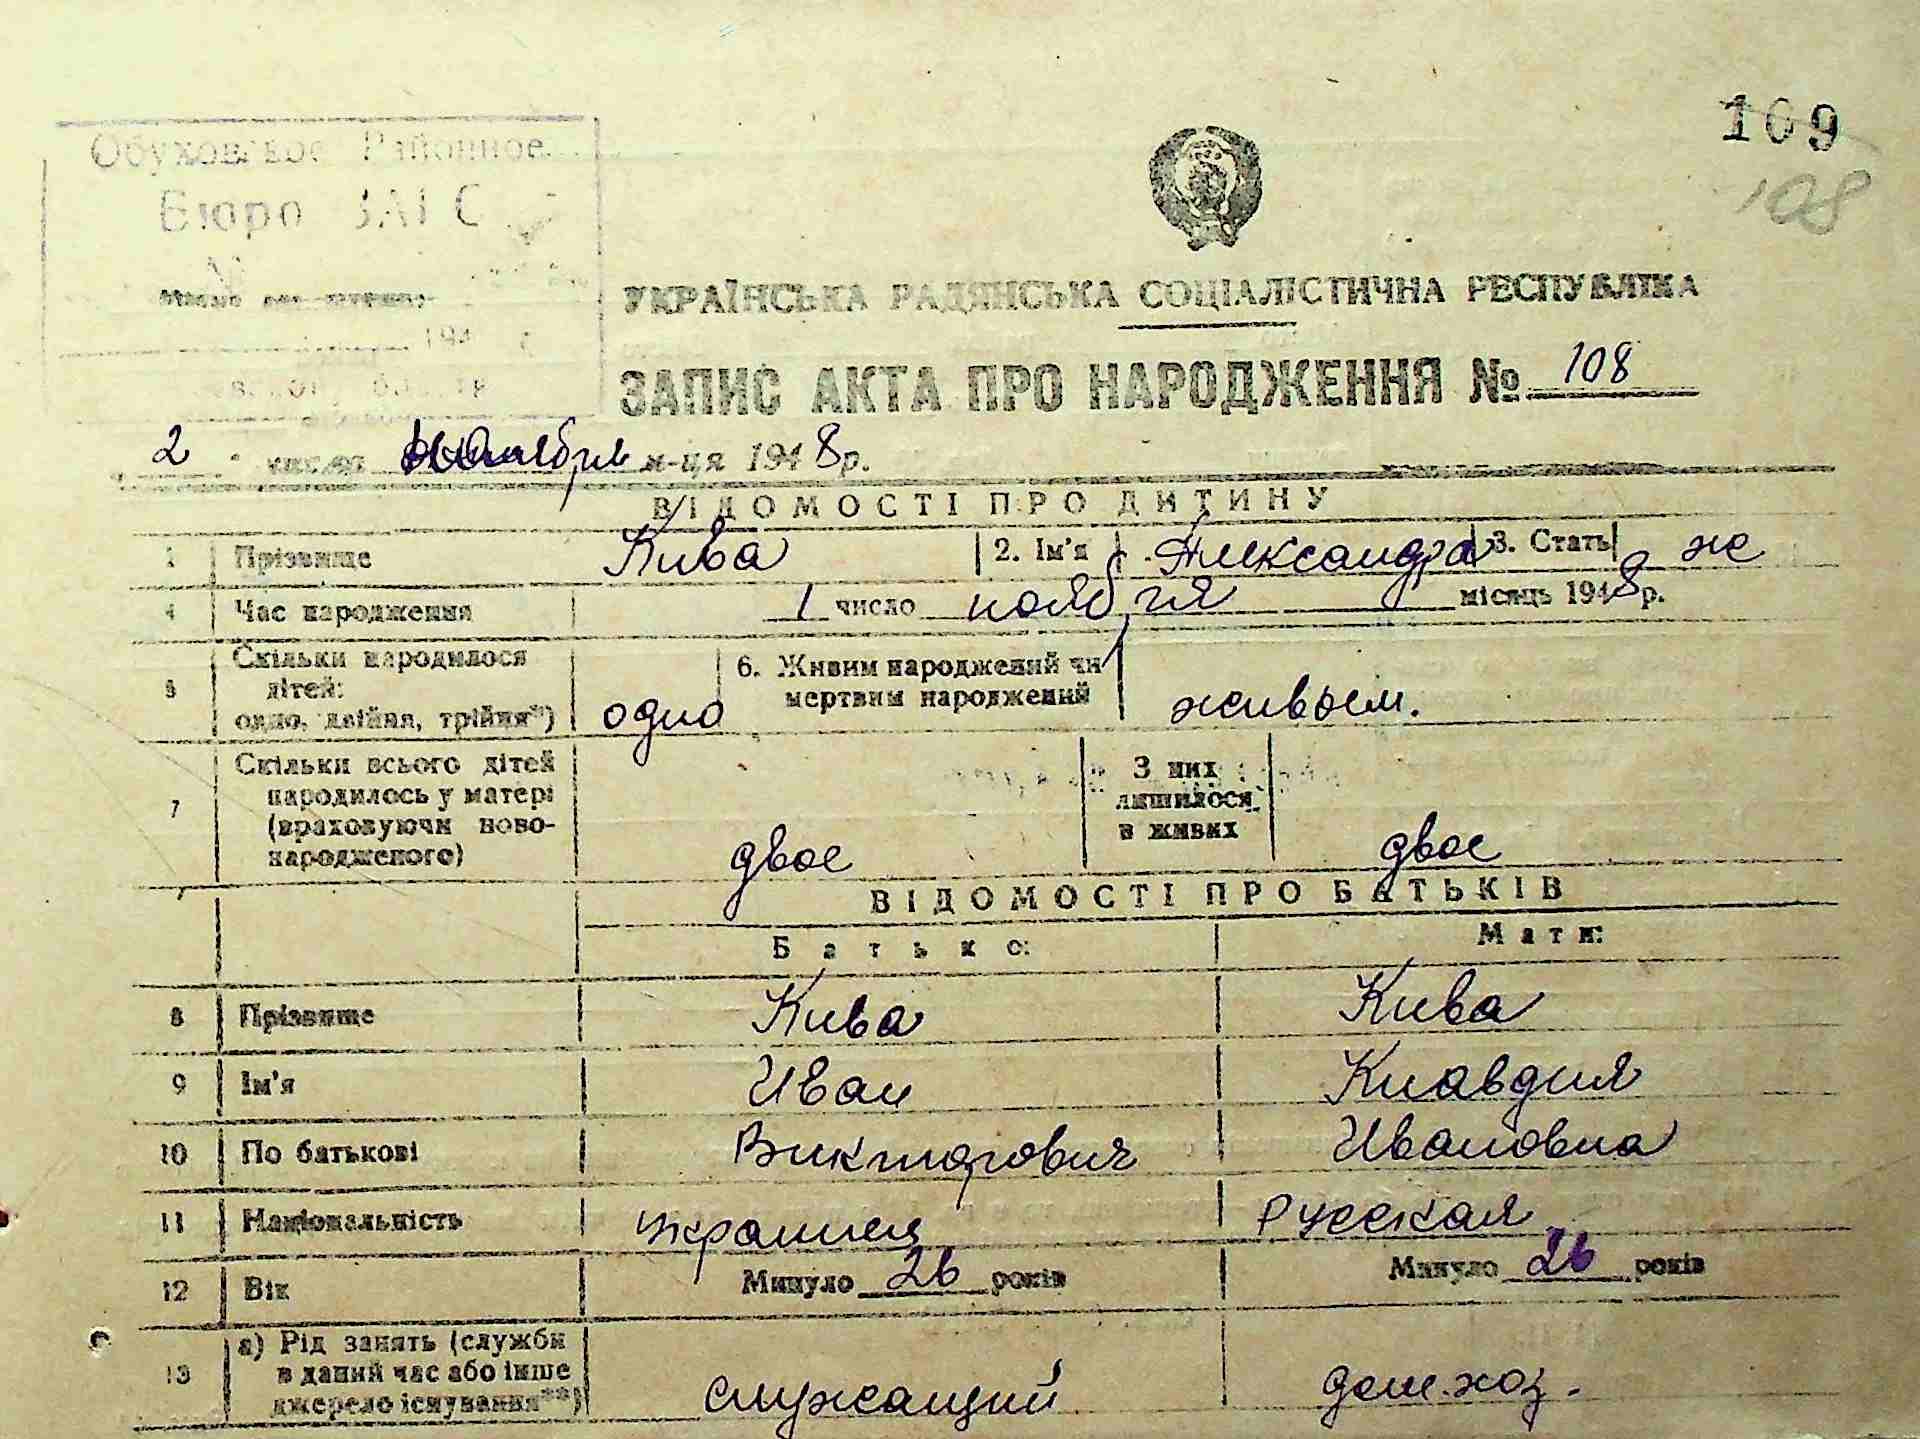 109
108
Обуховское Районное
Бюро ЗАГС
194 г.
УКРАЇНСЬКА РАДЯНСЬКА СОЦІАЛІСТИЧНА РЕСПУБЛІКА
ЗАПИС АКТА ПРО НАРОДЖЕННЯ № 108
2 числа ноября м-ця 1948р.
ВІДОМОСТІ ПРО ДИТИНУ
1 Прізвище Кива 2. Ім'я Александра 3. Стать ж
4 Час народження 1 число ноября місяць 1948р.
5 Скільки народилося дітей: одно, двійня, трійня*) одно 6. Живим народжений чи мертвим народжений живьем.
7 Скільки всього дітей народилось у матері (враховуючи новонародженого) двое З них лишилося в живих двое
ВІДОМОСТІ ПРО БАТЬКІВ
Батько: Мати:
8 Прізвище Кива Кива
9 Ім'я Иван Клавдия
10 По батькові Викторович Ивановна
11 Національність украинец Русская
12 Вік Минуло 26 років Минуло 26 років
13 а) Рід занять (служби в даний час або інше джерело існування**) служащий дом. хоз.